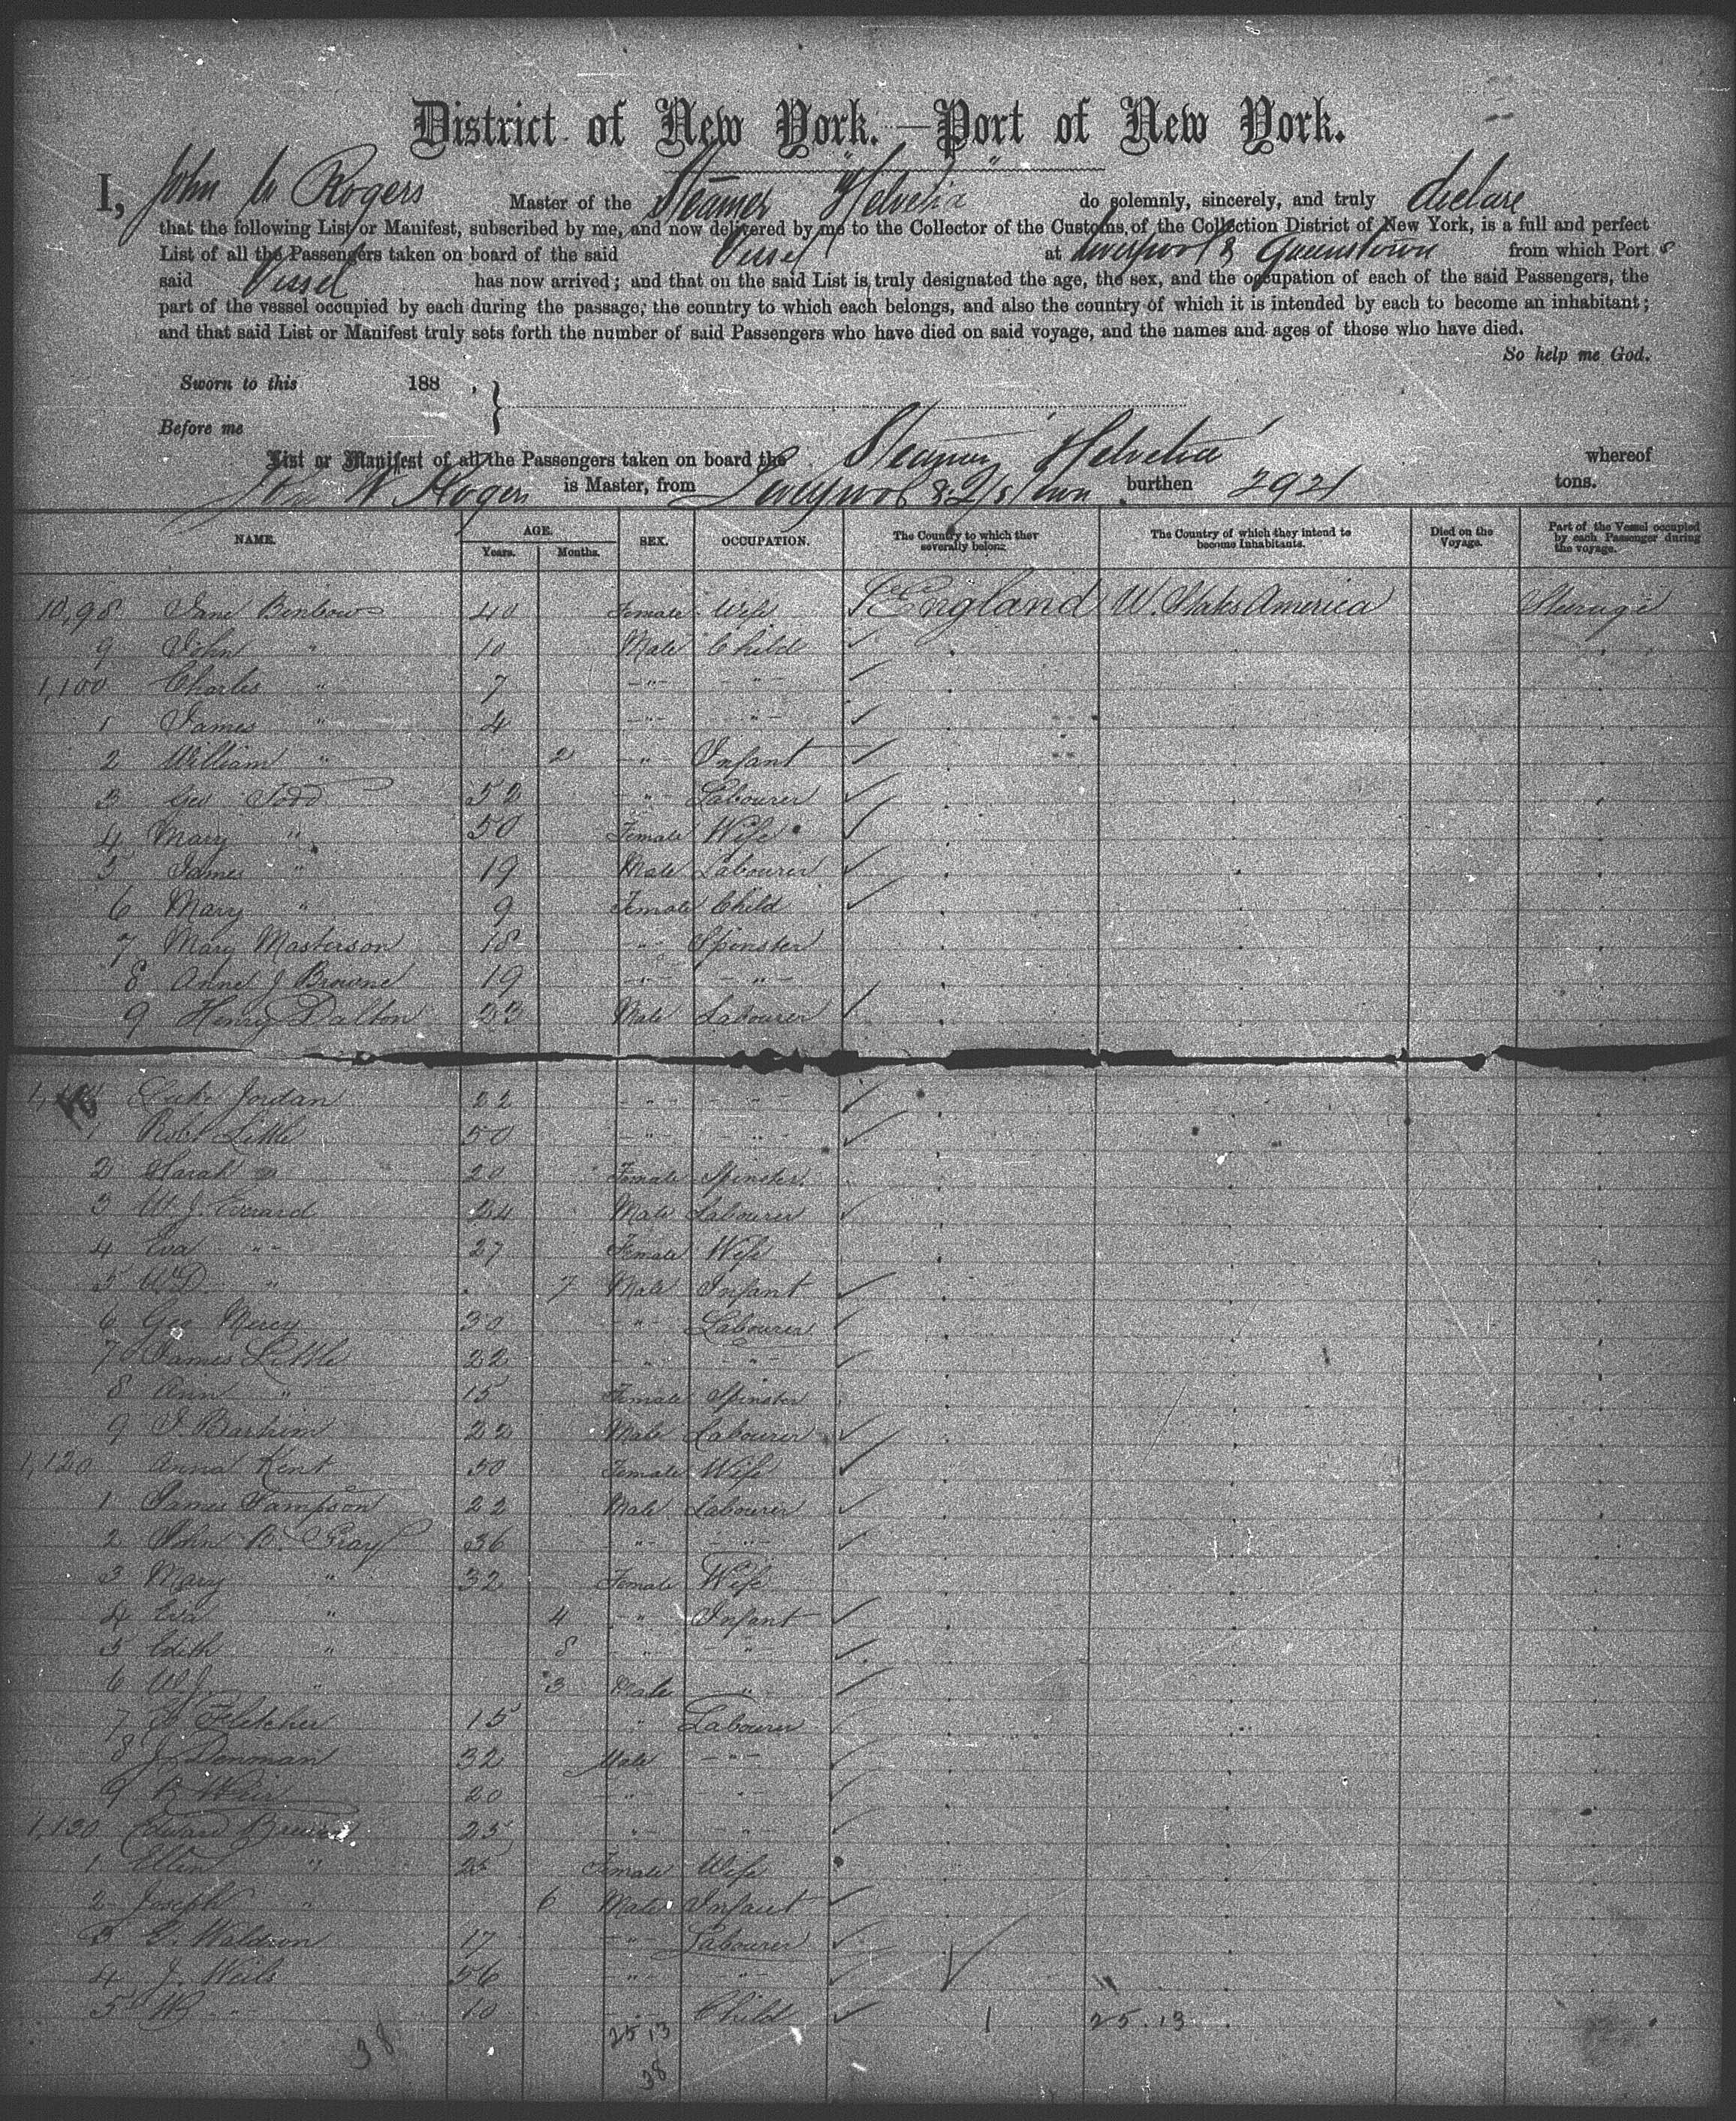 District of New York.—Port of New York.
I, John W Rogers Master of the Steamer "Helvetia" do solemnly, sincerely, and truly declare
that the following List or Manifest, subscribed by me, and now delivered by me to the Collector of the Customs, of the Collection District of New York, is a full and perfect
List of all the Passengers taken on board of the said Vessel at Liverpool & Queenstown from which Port s
said Vessel has now arrived; and that on the said List is truly designated the age, the sex, and the occupation of each of the said Passengers, the
part of the vessel occupied by each during the passage; the country to which each belongs, and also the country of which it is intended by each to become an inhabitant;
and that said List or Manifest truly sets forth the number of said Passengers who have died on said voyage, and the names and ages of those who have died.
So help me God.
Sworn to this 188 ,
Before me
List or Manifest of all the Passengers taken on board the Steamer Helvetia whereof
John W Rogers is Master, from Liverpool & Q/stown burthen 2921 tons.
NAME. AGE. Years. Months. SEX. OCCUPATION. The Country to which they severally belong. The Country of which they intend to become Inhabitants. Died on the Voyage. Part of the Vessel occupied by each Passenger during the voyage.
10,98 Jane Benbow 40 Female Wife England U. States America Steerage
9 John " 10 Male Child
1,100 Charles " 7 " "
1 James " 4 " "
2 William " 2 " Infant
3 Geo Todd 52 " Labourer
4 Mary " 50 Female Wife
5 James " 19 Male Labourer
6 Mary " 9 Female Child
7 Mary Masterson 18 " Spinster
8 Anne J Browne 19 " "
9 Henry Dalton 23 Male Labourer
Luke Jordan 22 " "
1 Robt Little 50 " "
2 Sarah " 20 Female Spinster
3 W. J. Everard 24 Male Labourer
4 Eva " 27 Female Wife
5 W D " 7 Male Infant
6 Geo Mercy 30 " Labourer
7 James Little 22 " "
8 Ann " 15 Female Spinster
9 J. Bartrim 22 Male Labourer
1,120 Anna Kent 50 Female Wife
1 James Sampson 22 Male Labourer
2 John B. Gray 36 " "
3 Mary " 32 Female Wife
4 Eva " 4 " Infant
5 Edith " 8 " "
6 W J. " 3 Male "
7 Fletcher 15 " Labourer
8 J. Denman 32 Male "
9 Weir 20 " "
1,130 Edward 25 " "
1 Ellen " 25 Female Wife
2 Joseph " 6 Male Infant
3 E. Waldron 17 " Labourer
4 J. Weils 56 " "
5 W " 10 " Child
38 25 13 1 25.13
38